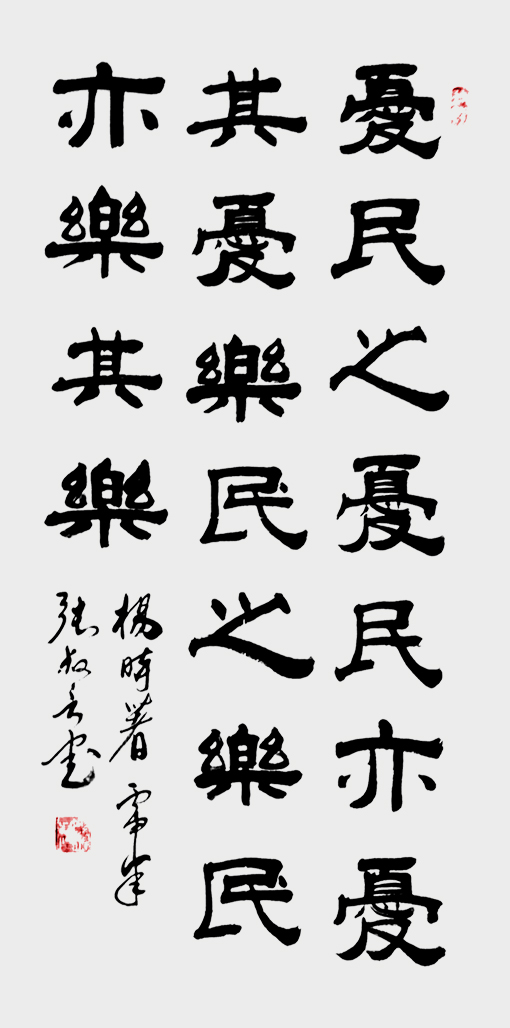 憂民之憂民亦憂
其憂樂民之樂民
亦樂其樂
楊時著
張叔言書